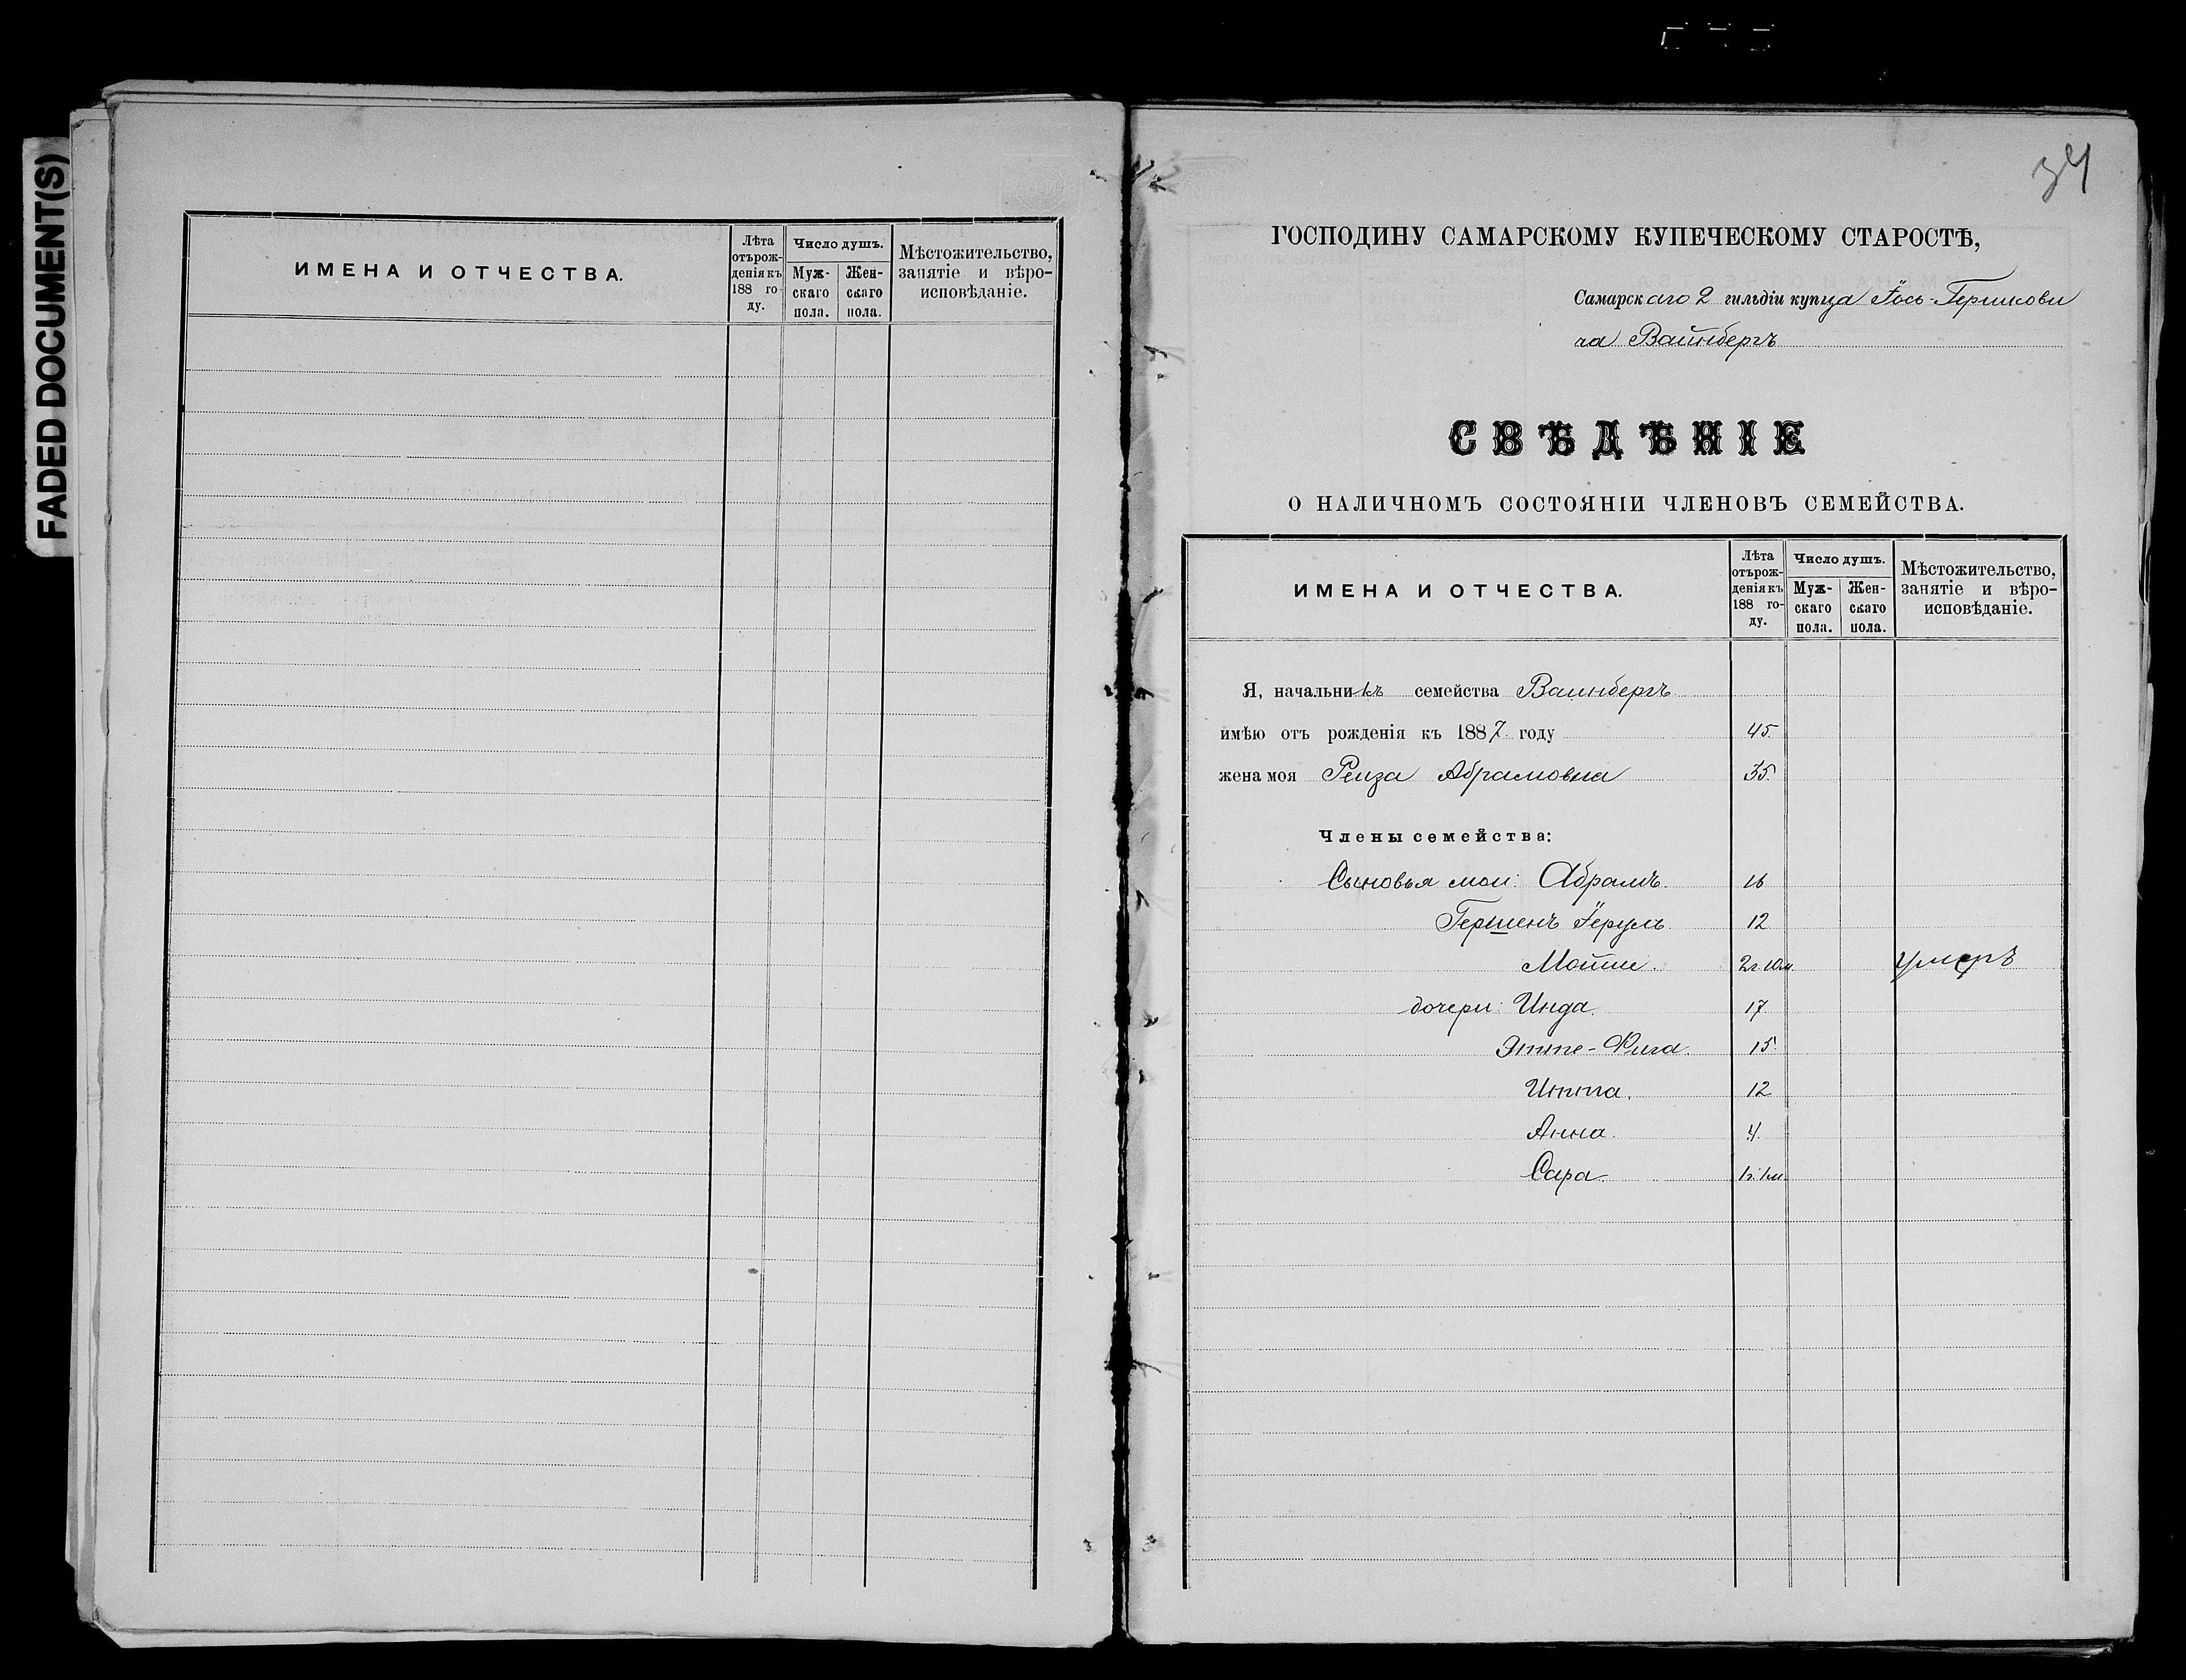 FADED DOCUMENT(S)
ИМЕНА И ОТЧЕСТВА.
Лѣта отърожденія къ 188 году.
Число душъ.
Мужскаго пола.
Женскаго пола.
Мѣстожительство, занятіе и вѣроисповѣданіе.
34
ГОСПОДИНУ САМАРСКОМУ КУПЕЧЕСКОМУ СТАРОСТѢ,
Самарскаго 2 гильдіи купца Іось-Гершкови
ча Вайнбергъ
СВѢДѢНІЕ
О НАЛИЧНОМЪ СОСТОЯНІИ ЧЛЕНОВЪ СЕМЕЙСТВА.
ИМЕНА И ОТЧЕСТВА.
Лѣта отърожденія къ 188 году.
Число душъ.
Мужскаго пола.
Женскаго пола.
Мѣстожительство, занятіе и вѣроисповѣданіе.
Я, начальникъ семейства Ваинбергъ
имѣю отъ рожденія къ 1887 году 45.
жена моя Реиза Абрамовна 35.
Члены семейства:
Сыновья мои: Абрамъ. 16
Гершенъ 12
Мойше. 2г. 10м. умеръ
дочери: Инда. 17.
Этте-Фига. 15.
Итта. 12
Анна. 4.
Сара. 1г. 1м.